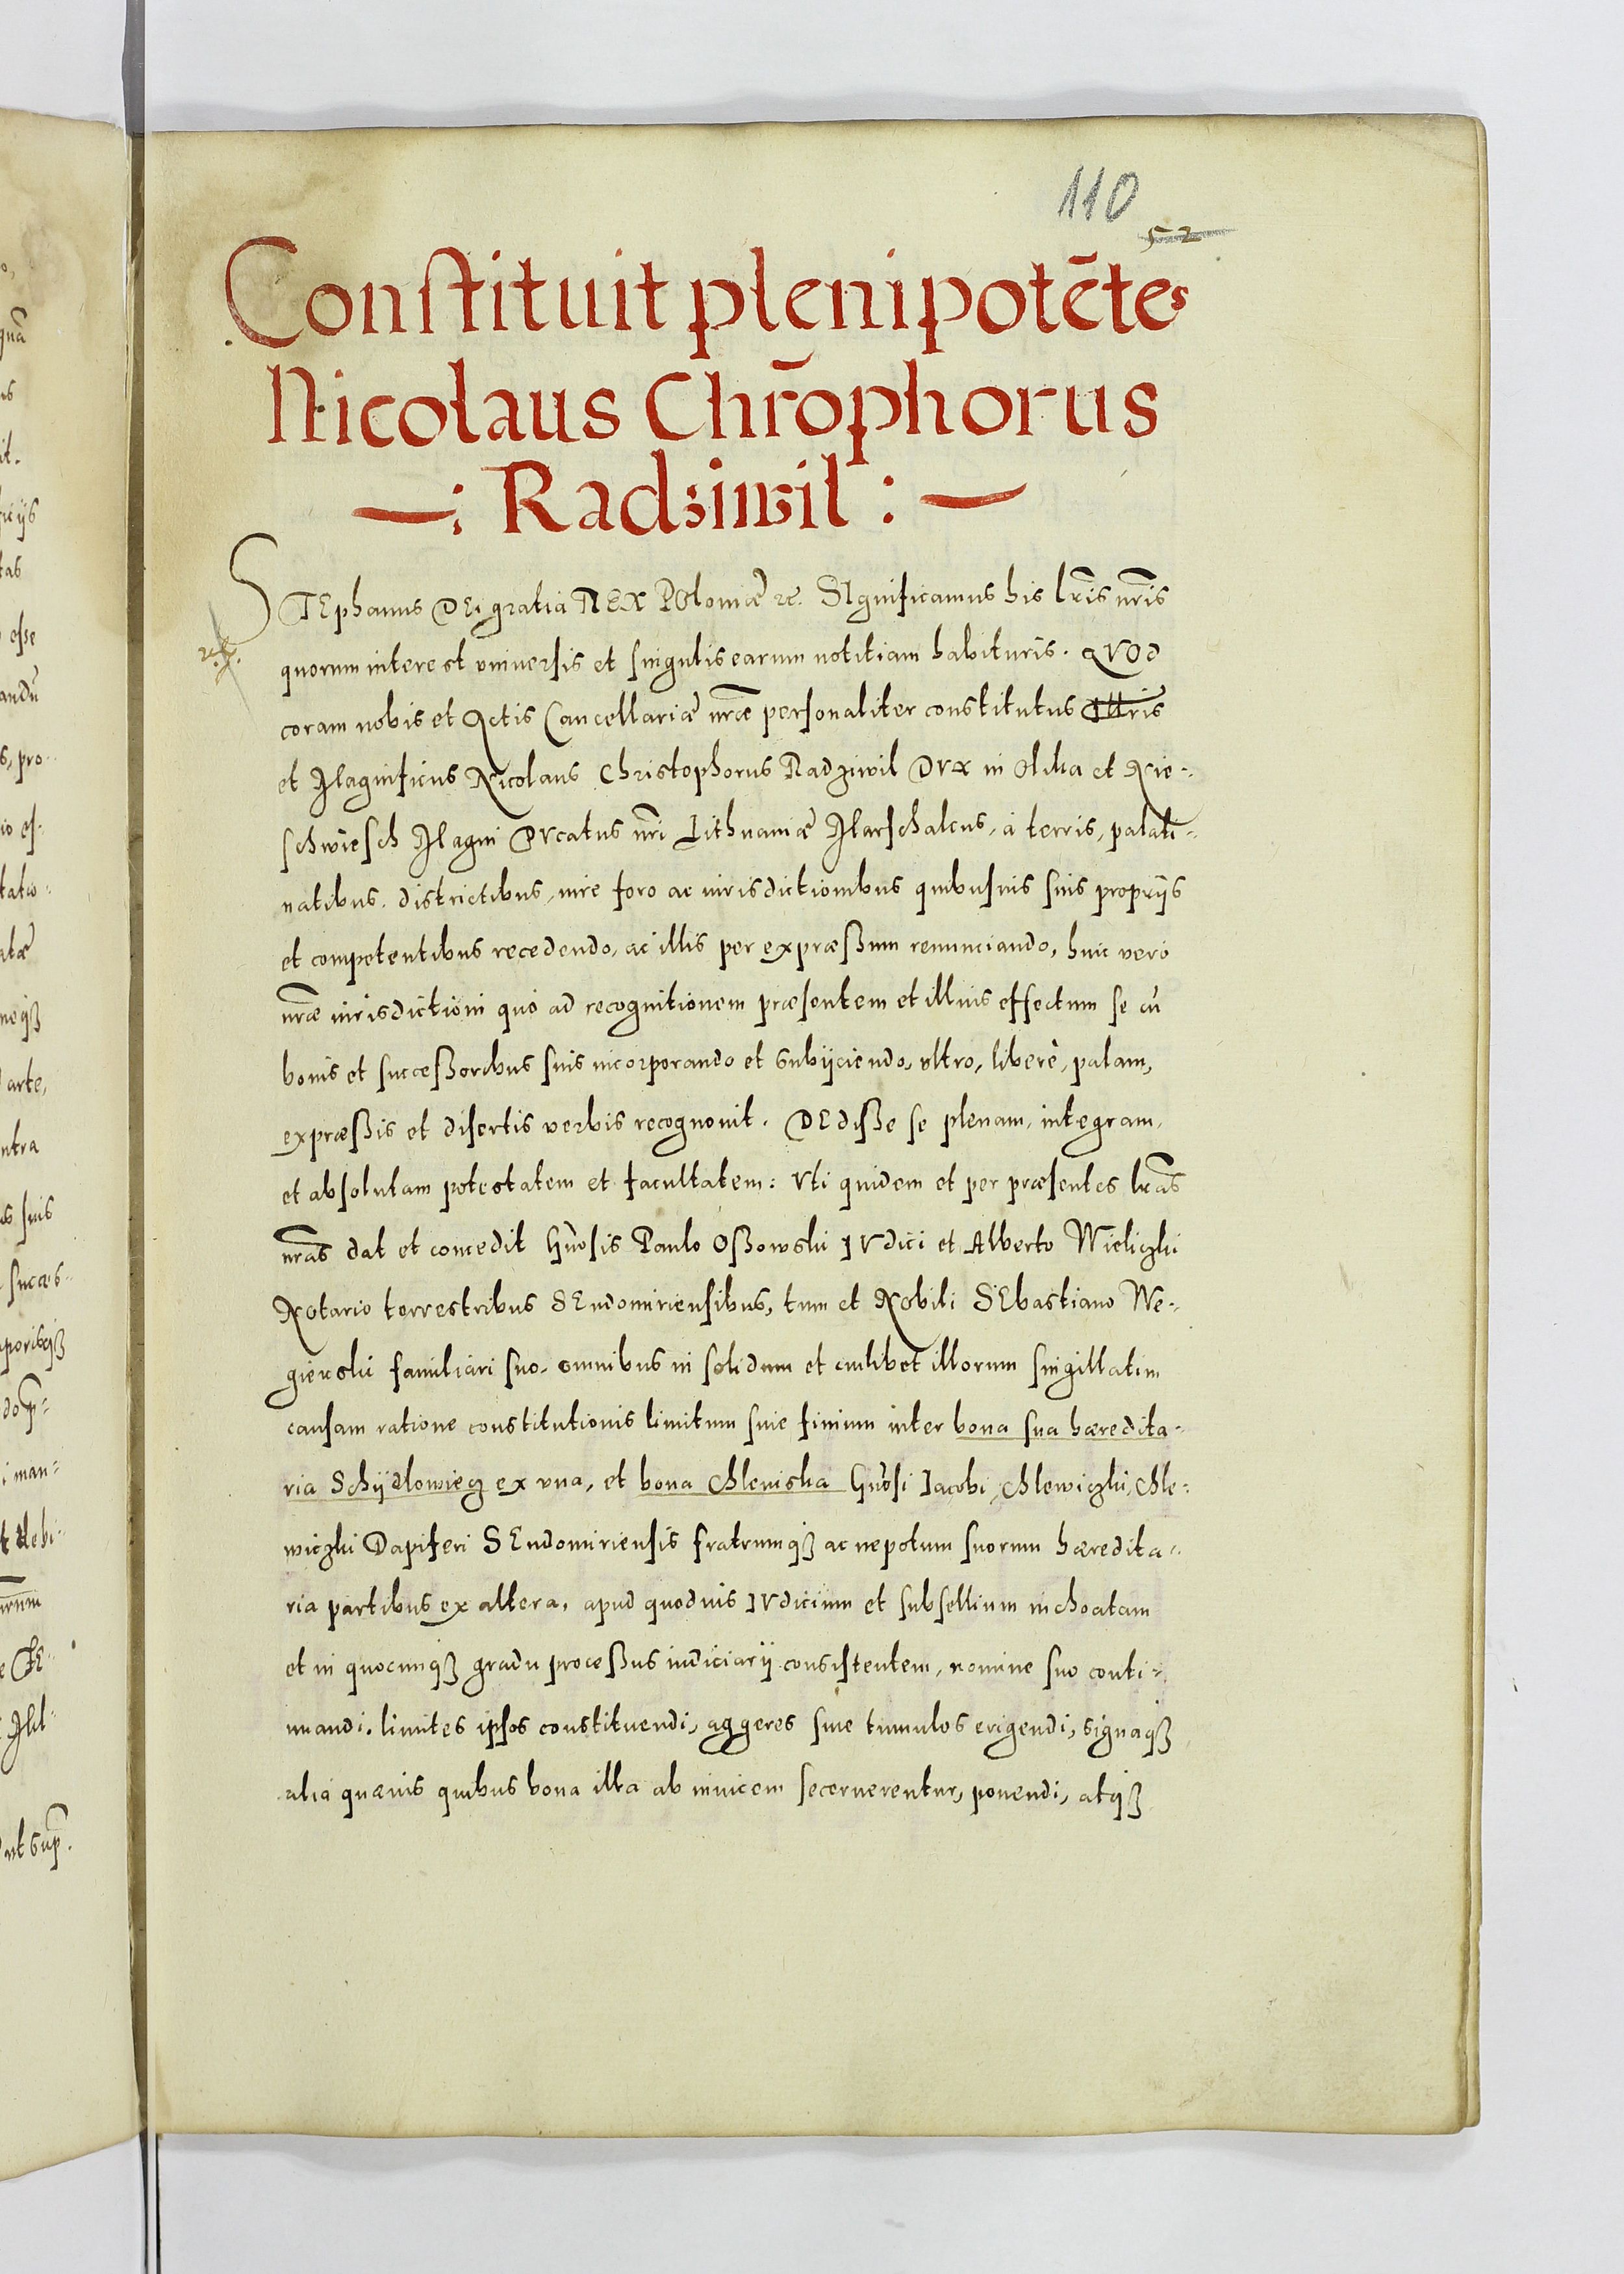 110
52
Constituit plenipotēte^s
Nicolaus Chr̄ophorus
—: Radziwil :—
STEphanus DEi gratia REX POloniæ ꝛc. SIgnificamus his lr̄is nr̄is
quorum interest vniuersis et singulis earum notitiam habituris. QVOd
coram nobis et Actis Cancellariæ nr̄æ personaliter constitutus Illris
et Magnificus Nicolaus Christophorus Radziwil DVx in Olika et Nie-
schwiesch Magni DVcatus nr̄i Lithuaniæ Marschalcus, à terris, palati-
natibus. districtibus, iure foro ac iurisdictionibus quibusuis suis proprijs
et competentibus recedendo, ac illis per expræßum renunciando, huic vero
nr̄æ iurisdictioni quò ad recognitionem præsentem et illius effectum se cū
bonis et succeßoribus suis incorporando et subijciendo, vltro, liberè, palam,
expræßis et disertis verbis recognouit. DEdiße se plenam, integram,
et absolutam potestatem et facultatem: Vti quidem et per præsentes lr̄as
nr̄as dat et concedit Gn̄osis Paulo Oßowski IVdici et Alberto Wieliczki
Notario terrestribus SEndomiriensibus, tum et Nobili SEbastiano We-
gierski familiari suo. omnibus in solidum et cuilibet illorum singillatim
causam ratione constitutionis limitum siue finium inter bona sua hæredita-
ria Schÿdlowiecz ex vna, et bona Chlewiska Gn̄osi Iacobi Chlewiczki, Chle-
wiczki Dapiferi SEndomiriensis fratrumqꝫ ac nepotum suorum hæredita-
ria partibus ex altera, apud quoduis IVdicium et subsellium inchoatam
et in quocunqꝫ gradu proceßus iudiciarij consistentem, nomine suo conti-
nuandi. limites ipsos constituendi, aggeres siue tumulos erigendi, signaqꝫ
alia quæuis quibus bona illa ab inuicem secernerentur, ponendi, atqꝫ